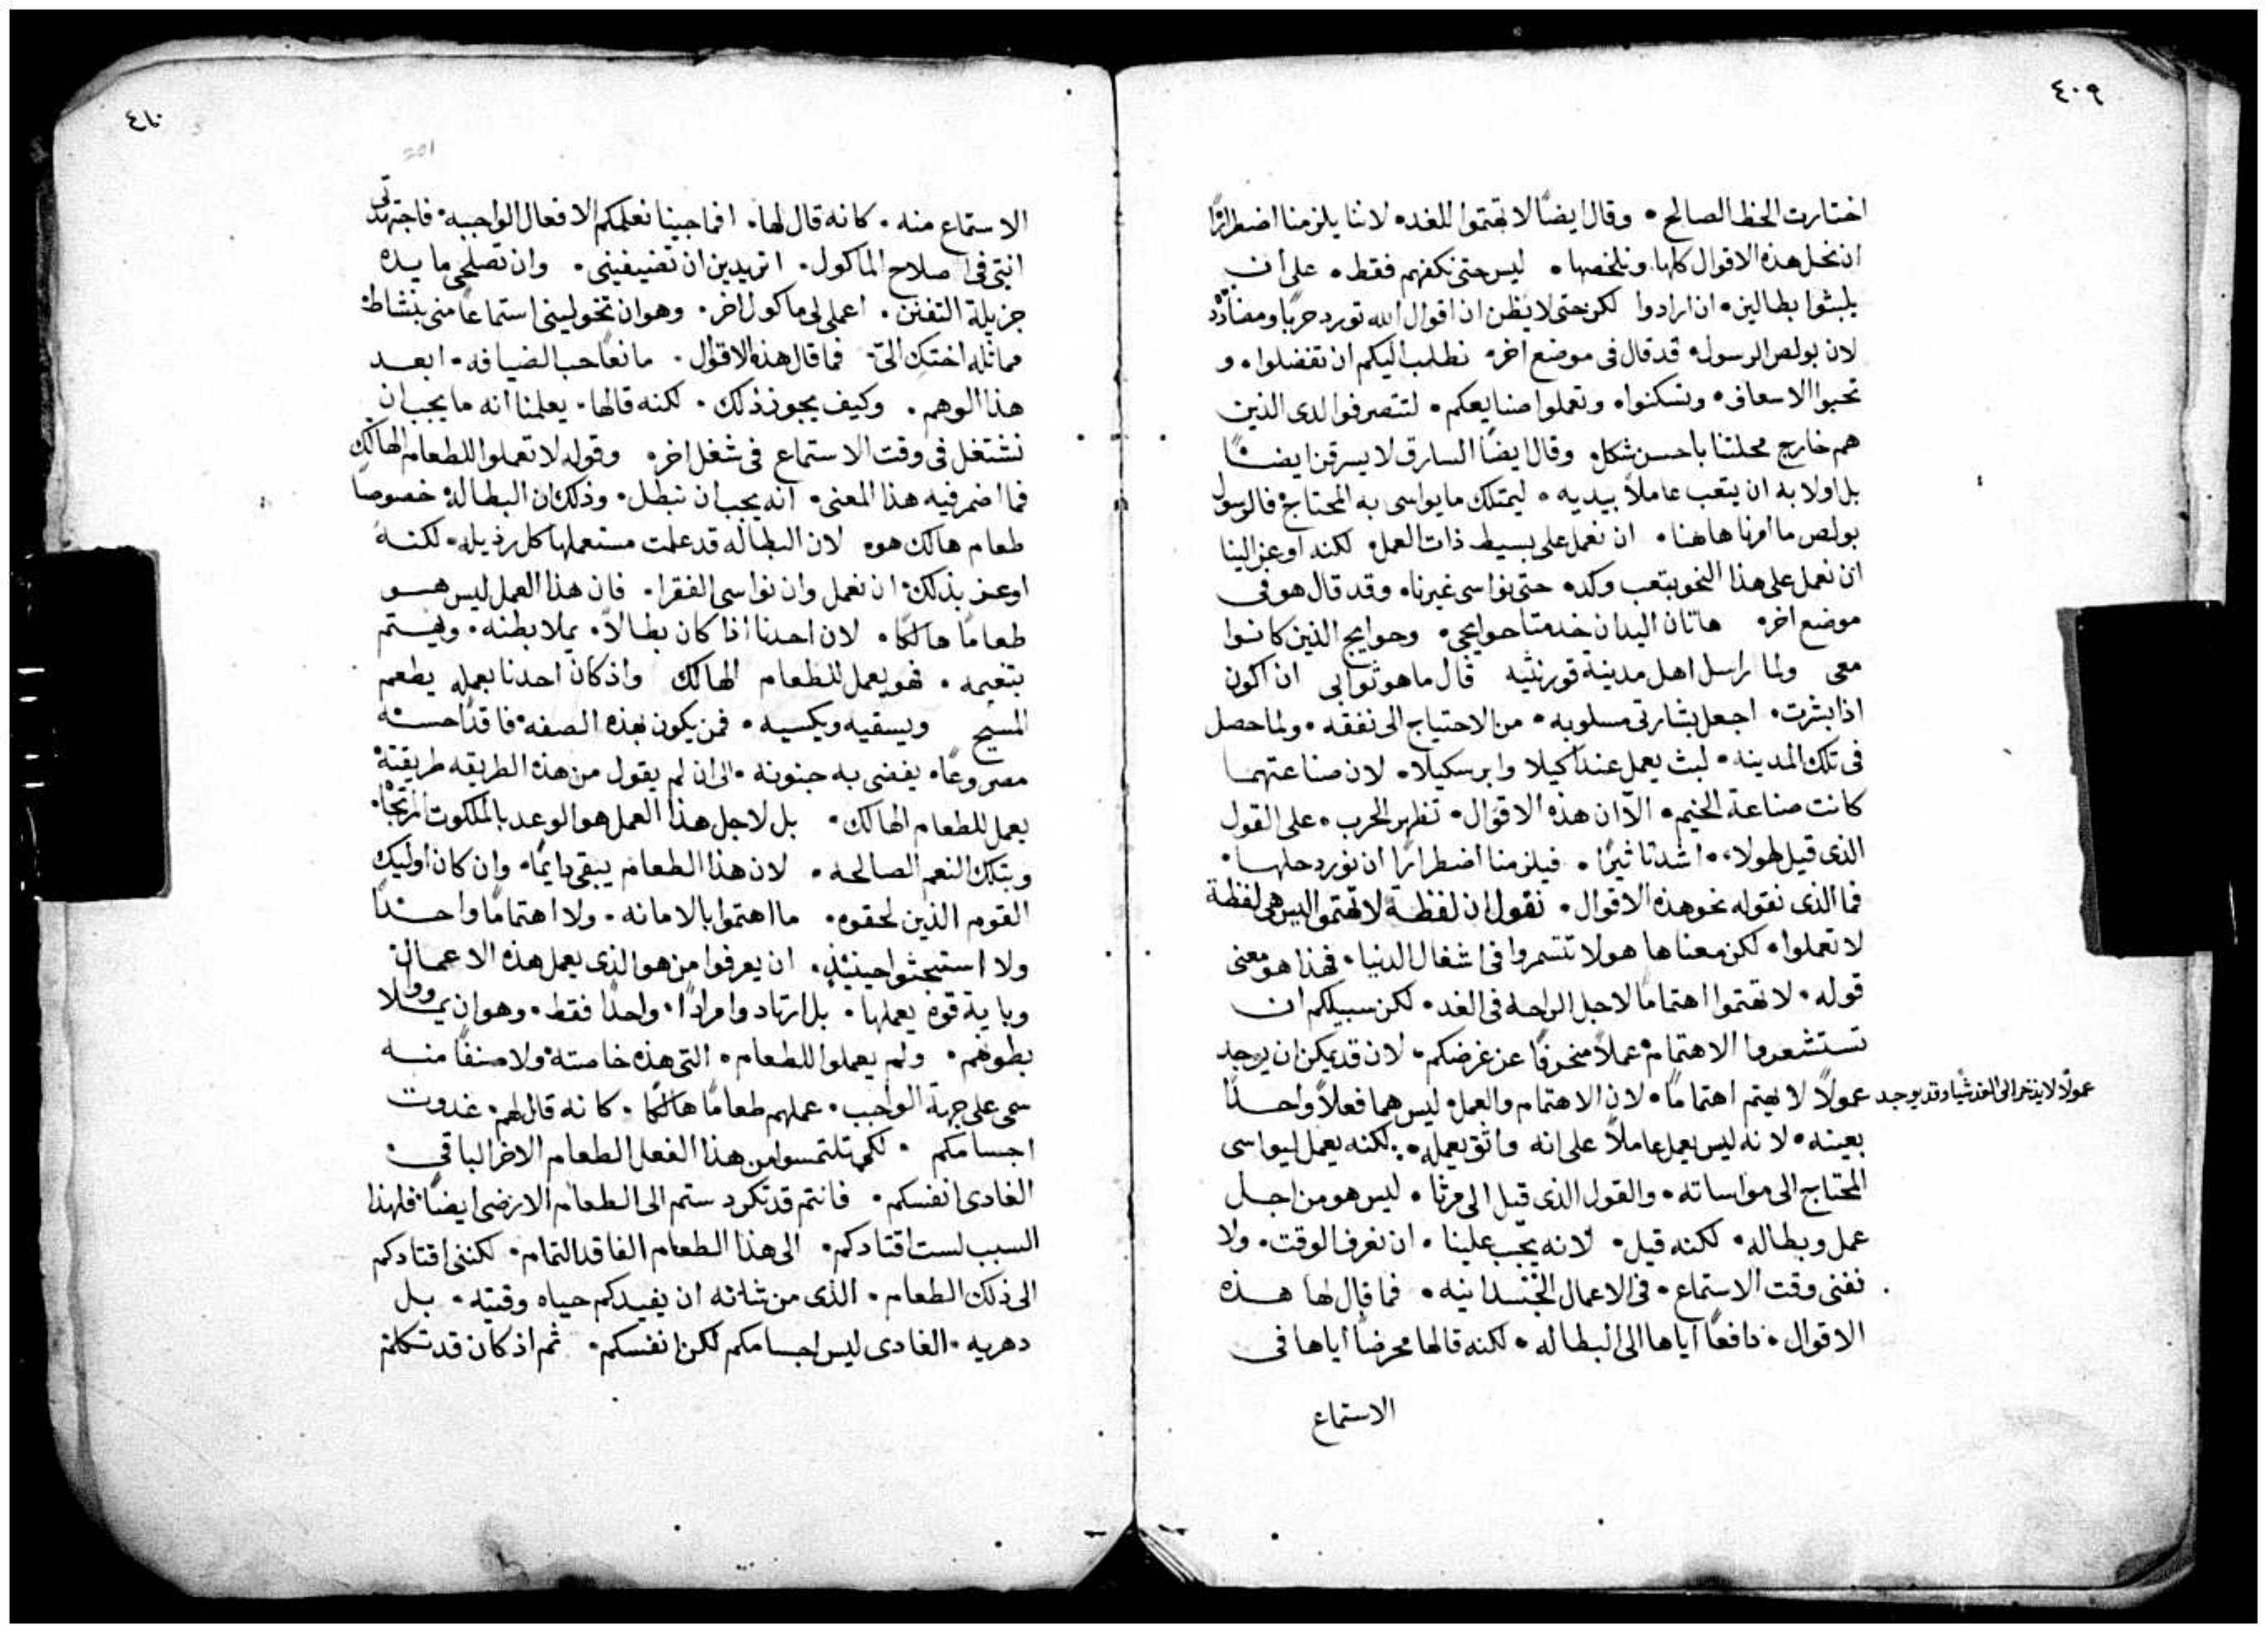 ٤٠٩
اختارت الحظ الصالح • وقال ايضًا لا تهتموا للغد • لاننا يلزمنا اضطرارًا
ان نحل هذه الاقوال كلها . ونلخصها • ليس حتى نكفهم فقط • على ان
يلبثوا بطالين • ان ارادوا لكن حتى لا يظن ان اقوال الله تورد حربًا ومضادّة
لان بولص الرسول • قد قال فى موضع اخر • نطلب اليكم ان تفضلوا • و
تحبوا الاسعاف • وتسكنوا • وتعملوا صنايعكم • لتتصرفوا لدى الذين
هم خارج محلتنا باحسن شكل • وقال ايضًا السارق لا يسرقن ايضًا
بل اولا به ان يتعب عاملاً بيديه • ليمتلك ما يواسى به المحتاج • فالرسول
بولص ما امرنا هاهنا • ان نعمل على بسيط ذات العمل • لكنه اوعز الينا
ان نعمل على هذا النحو بتعب وكد • حتى نواسى غيرنا • وقد قال هو فى
موضع اخر • هاتان اليدان خدمتا حوايجى • وحوايج الذين كانوا
معى ولما راسل اهل مدينة قورنثيه قال ما هو ثوابى ان اكون
اذا بشرت • اجعل بشارتى مسلوبه • من الاحتياج الى نفقه • ولما حصل
فى تلك المدينه • لبث يعمل عند اكيلا وابرسكيلا • لان صناعتهما
كانت صناعة الخيم • الا ان هذه الاقوال • تظهر الحرب • على القول
الذى قيل لهولاء • اشد تاثيرًا • فيلزمنا اضطرارًا ان نورد حلها •
فما الذى نقوله نحو هذه الاقوال • نقول ان لفظة لا تهتموا ليس هى لفظة
لا تعملوا • لكن معناها هو لا تتسمروا فى اشغال الدنيا • فهذا هو معنى
قوله • لا تهتموا اهتمامًا لاجل الراحه فى الغد • لكن سبيلكم ان
تستشعروا الاهتمام • عملاً منحرفًا عن غرضكم • لان قد يمكن ان يوجد
عمولاً لا يذخر الى الغد شيًا وقد يوجد عمولاً لا يهتم اهتمامًا • لان الاهتمام والعمل • ليس هما فعلاً واحدًا
بعينه • لانه ليس يعمل عاملاً على انه واثق بعمله • لكنه يعمل ليواسى
المحتاج الى مواساته • والقول الذى قيل الى مرثا • ليس هو من اجل
عمل وبطاله • لكنه قيل • لانه يجب علينا • ان نعرف الوقت • ولا
نفنى وقت الاستماع • فى الاعمال الجسدانيه • فما قال لها هذه
الاقوال • دافعًا اياها الى البطاله • لكنه قالها محرضًا اياها فى
الاستماع
٤١٠
201
الاستماع منه • كانه قال لها • افما جينا نعلمكم الافعال الواجبه • فاجتهدتى
انتى فى اصلاح الماكول • اتريدين ان تضيفينى • وان تصلحى مايده
جزيلة التفنن • اعملى لى ماكول اخر • وهو ان تخولينى استماعًا منى بنشاط •
مماثله اختك الىّ • فما قال هذه الاقوال • مانعًا حب الضيافه • ابعد
هذا الوهم • وكيف يجوز ذلك • لكنه قالها • يعلمنا انه ما يجب ان
نشتغل فى وقت الاستماع فى شغل اخر • وقوله لا تعملوا للطعام الهالك
فما اضمر فيه هذا المعنى • انه يجب ان نبطل • وذلك ان البطاله • خصوصًا
طعام هالك هو • لان البطاله قد علمت مستعملها كل رذيله • لكنه
اوعز بذلك • ان نعمل وان نواسى الفقرا • فان هذا العمل ليس هو
طعامًا هالكًا • لان احدنا اذا كان بطالاً • يملا بطنه • ويهتم
بتنعيمه • فهو يعمل للطعام الهالك واذ كان احدنا بعمله يطعم
المسيح ويسقيه ويكسيه • فمن يكون بهذه الصفه • فاقدًا حسه
مصروعًا • يفضى به جنونه • الى ان لم يقول من هذه الطريقه طريقته •
يعمل للطعام الهالك • بل لاجل هذا العمل هو الوعد بالملكوت المرتجا •
وبتلك النعم الصالحه • لان هذا الطعام يبقى دايمًا • وان كان اوليك
القوم الذين لحقوه • ما اهتموا بالامانه • ولا اهتمامًا واحدًا
ولا استبحثوا حينئذٍ • ان يعرفوا من هو الذى يعمل هذه الاعمال •
وباية قوه يعملها • بل ارتادوا مرادًا • واحدًا فقط • وهو ان يملاووا
بطونهم • ولم يعملوا للطعام • التى هذه خاصته • ولا صنفًا منه
سمى على جهة الواجب • عملهم طعامًا هالكًا • كانه قال لهم • غدوت
اجسامكم • لكى تلتمسوا من هذا الفعل الطعام الاخر الباقى •
الغادى انفسكم • فانتم قد تكردستم الى الطعام الارضى ايضًا • فلهذا
السبب لست اقتادكم • الى هذا الطعام الفاقد التمام • لكننى اقتادكم
الى ذلك الطعام • الذى من شانه ان يفيدكم حياه وقتيه • بل
دهريه • الغادى ليس اجسامكم لكن انفسكم • ثم اذ كان قد تكلم